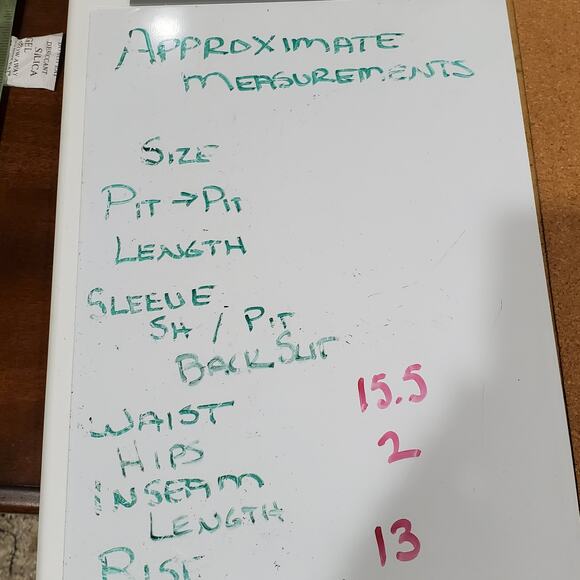 APPROXIMATE
MEASUREMENTS
SIZE
PIT → PIT
LENGTH
SLEEVE
SH / PIT
BACK SLIT
WAIST 15.5
HIPS 2
INSEAM
LENGTH 13
RISE
DESICCANT
SILICA
GEL